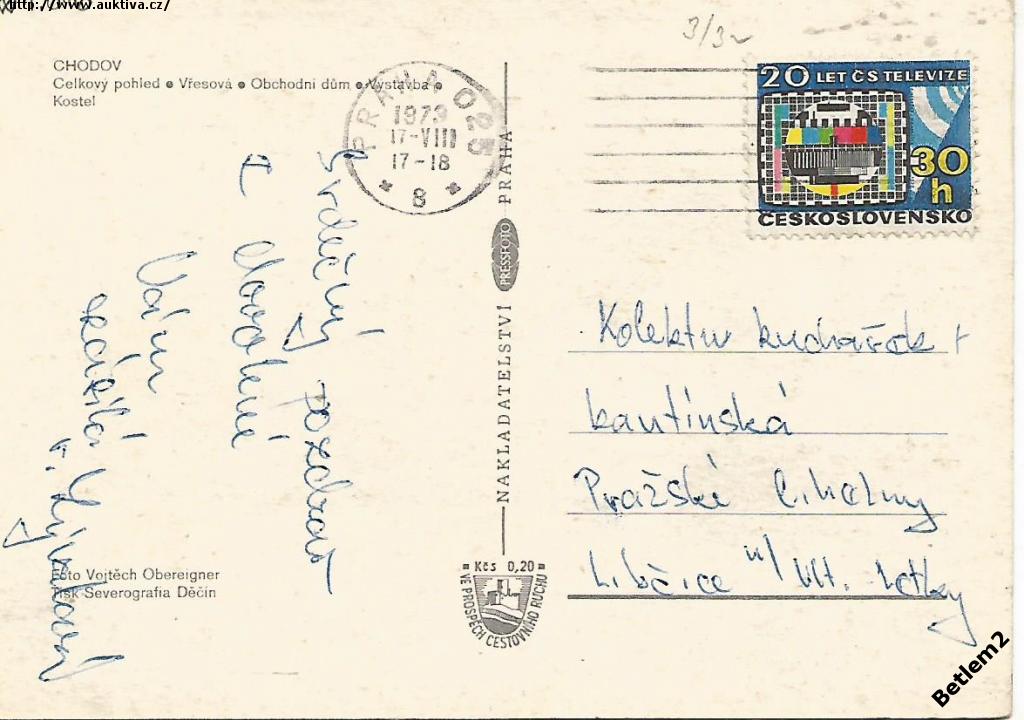 http://www.auktiva.cz/
3/32
CHODOV
Celkový pohled • Vřesová • Obchodní dům • Výstavba •
Kostel
PRAHA 025
1973
17-VIII
17-18
* 8 *
20 LET ČS TELEVIZE
30
h
ČESKOSLOVENSKO
Srdečný pozdrav
z dovolené
Vám
zasílá
NAKLADATELSTVÍ PRESSFOTO PRAHA
Kolektiv kuchařek +
kantinská
Pražské cihelny
Libčice n/Vlt. Letky
Foto Vojtěch Obereigner
Tisk Severografia Děčín
Kčs 0,20
VE PROSPĚCH CESTOVNÍHO RUCHU
Betlem2